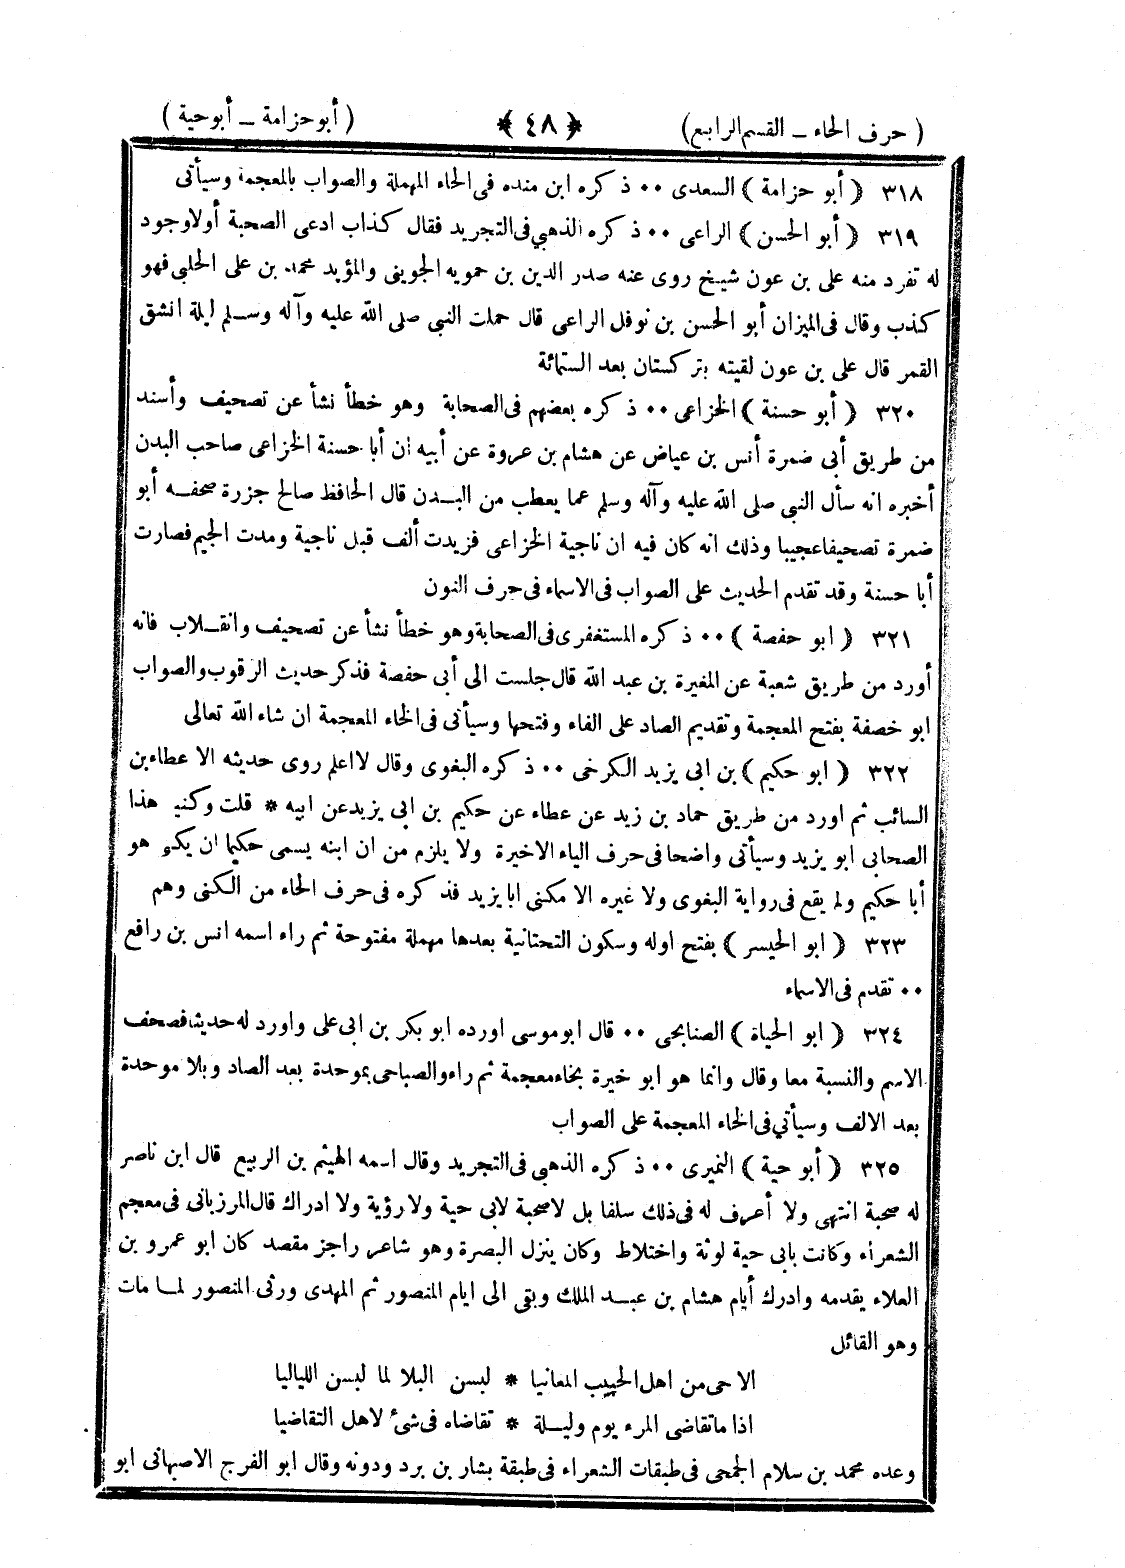 ( حرف الحاء – القسم الرابع) ﴿ ٤٨ ﴾ ( أبو حزامة – أبو حية )
٣١٨ ( أبو حزامة ) السعدى ٠٠ ذكره ابن منده فى الحاء المهملة والصواب بالمعجمة وسيأتى
٣١٩ ( أبو الحسن ) الراعى ٠٠ ذكره الذهبي فى التجريد فقال كذاب ادعى الصحبة أو لا وجود
له تفرد منه على بن عون شيخ روى عنه صدر الدين بن حمويه الجوينى والمؤيد محمد بن على الحلبى فهو
كذب وقال فى الميزان أبو الحسن بن نوفل الراعى قال حملت النبي صلى الله عليه وآله وسلم ليلة انشق
القمر قال على بن عون لقيته بتركستان بعد الستمائة
٣٢٠ ( أبو حسنة ) الخزاعى ٠٠ ذكره بعضهم فى الصحابة وهو خطأ نشأ عن تصحيف وأسند
من طريق أبى ضمرة أنس بن عياض عن هشام بن عروة عن أبيه ان أبا حسنة الخزاعى صاحب البدن
أخبره انه سأل النبي صلى الله عليه وآله وسلم عما يعطب من البدن قال الحافظ صالح جزرة صحفه أبو
ضمرة تصحيفا عجيبا وذلك انه كان فيه ان ناجية الخزاعى فزيدت ألف قبل ناجية ومدت الجيم فصارت
أبا حسنة وقد تقدم الحديث على الصواب فى الاسماء فى حرف النون
٣٢١ ( ابو حفصة ) ٠٠ ذكره المستغفرى فى الصحابة وهو خطأ نشأ عن تصحيف وانقلاب فانه
أورد من طريق شعبة عن المغيرة بن عبد الله قال جلست الى أبى حفصة فذكر حديث الرقوب والصواب
ابو خصفة بفتح المعجمة وتقديم الصاد على الفاء وفتحها وسيأتى فى الخاء المعجمة ان شاء الله تعالى
٣٢٢ ( ابو حكيم ) بن ابى يزيد الكرخى ٠٠ ذكره البغوى وقال لا اعلم روى حديثه الا عطاء بن
السائب ثم اورد من طريق حماد بن زيد عن عطاء عن حكيم بن ابى يزيد عن ابيه * قلت وكنية هذا
الصحابى ابو يزيد وسيأتى واضحا فى حرف الياء الاخيرة ولا يلزم من ان ابنه يسمى حكيما ان يكنى هو
أبا حكيم ولم يقع فى رواية البغوى ولا غيره الا مكنى ابا يزيد فذكره فى حرف الحاء من الكنى وهم
٣٢٣ ( ابو الحيسر ) بفتح اوله وسكون التحتانية بعدها مهملة مفتوحة ثم راء اسمه انس بن رافع
٠٠ تقدم فى الاسماء
٣٢٤ ( ابو الحياة ) الصنابحى ٠٠ قال ابو موسى اورده ابو بكر بن ابى على واورد له حديثا فصحف
الاسم والنسبة معا وقال وانما هو ابو خيرة بخاء معجمة ثم راء والصباحى بموحدة بعد الصاد وبلا موحدة
بعد الالف وسيأتي فى الخاء المعجمة على الصواب
٣٢٥ ( أبو حية ) النميرى ٠٠ ذكره الذهبى فى التجريد وقال اسمه الهيثم بن الربيع قال ابن ناصر
له صحبة انتهى ولا أعرف له فى ذلك سلفا بل لا صحبة لابى حية ولا رؤية ولا ادراك قال المرزبانى فى معجم
الشعراء وكانت بابى حية لوثة واختلاط وكان ينزل البصرة وهو شاعر راجز مقصد كان ابو عمرو بن
العلاء يقدمه وادرك أيام هشام بن عبد الملك وبقى الى ايام المنصور ثم المهدى ورثى المنصور لما مات
وهو القائل
الا حى من اهل الحبيب المغانيا * لبسن البلا لما لبسن اللياليا
اذا ما تقاضى المرء يوم وليلة * تقاضاه فى شئ لاهل التقاضيا
وعده محمد بن سلام الجمحى فى طبقات الشعراء فى طبقة بشار بن برد ودونه وقال ابو الفرج الاصبهانى ابو